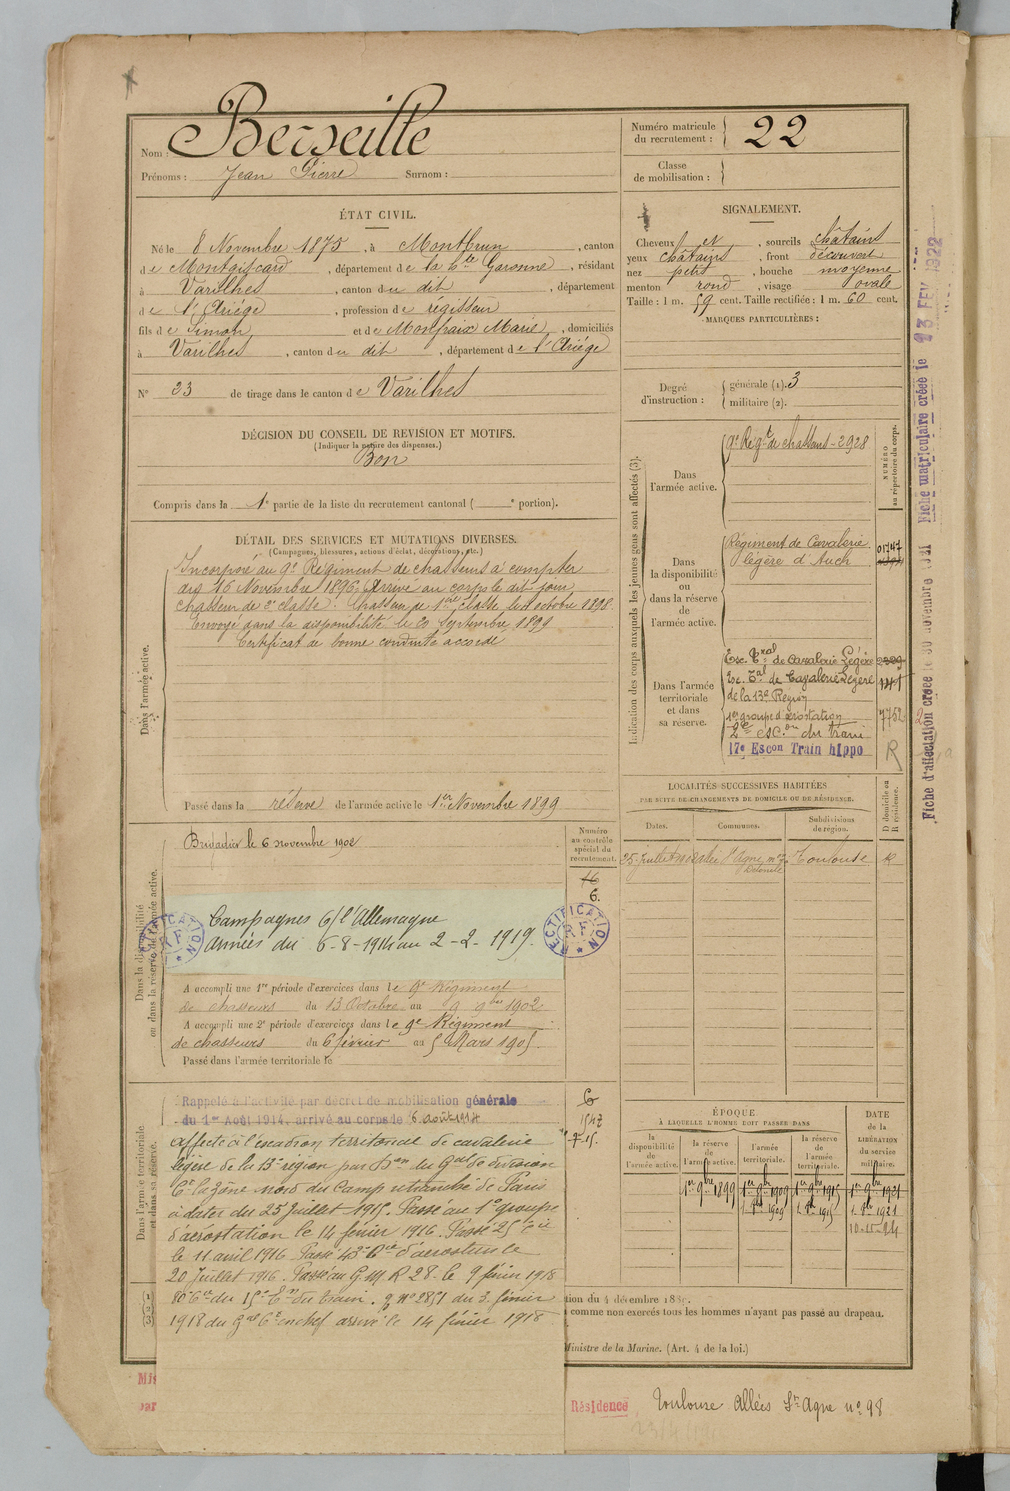 Nom : Berseille
Prénoms : Jean Pierre Surnom :
Numéro matricule
du recrutement : 22
Classe
de mobilisation :
ÉTAT CIVIL.
Né le 8 Novembre 1875, à Montbrun, canton
de Montgiscard, département de la Hte Garonne, résidant
à Varilhes, canton du dit, département
de l'Ariége, profession de régisseur
fils de Simon et de Monfraix Marie, domiciliés
à Varilhes, canton du dit, département de l'Ariége
N° 23 de tirage dans le canton de Varilhes
SIGNALEMENT.
Cheveux et, sourcils châtains
yeux châtains, front découvert
nez petit, bouche moyenne
menton rond, visage ovale
Taille : 1 m. 59 cent. Taille rectifiée : 1 m. 60 cent.
MARQUES PARTICULIÈRES :
Degré
d'instruction :
générale (1). 3
militaire (2).
DÉCISION DU CONSEIL DE REVISION ET MOTIFS.
(Indiquer la nature des dispenses.)
Bon
Compris dans la 1e partie de la liste du recrutement cantonal ( e portion).
DÉTAIL DES SERVICES ET MUTATIONS DIVERSES.
(Campagnes, blessures, actions d'éclat, décorations, etc.)
Dans l'armée active.
Incorporé au 9e Régiment de chasseurs à compter
du 16 Novembre 1896. Arrivé au corps le dit jour,
chasseur de 2e classe. Chasseur de 1ere classe le 1 octobre 1898.
Envoyé dans la disponibilité le 20 Septembre 1899
Certificat de bonne conduite accordé
Passé dans la réserve de l'armée active le 1er Novembre 1899
Indication des corps auxquels les jeunes gens sont affectés (3).
NUMÉRO
au répertoire du corps.
Dans
l'armée active.
9e Régt de chasseurs - 2928
Dans
la disponibilité
ou
dans la réserve
de
l'armée active.
Régiment de Cavalerie
légère d'Auch
01747
Dans l'armée
territoriale
et dans
sa réserve.
Esc. Tnal de Cavalerie Légère
Esc. Tal de Cavalerie Légère
de la 13e Région
1er groupe d'aérostation 7752
2e esc.on du train
17e Escon Train hippo R
Fiche matriculaire créée le 13 FEV 1922
Fiche d'affectation créée le 30 novembre 1921
Dans la disponibilité
ou dans la réserve de l'armée active.
Numéro
au contrôle
spécial du
recrutement.
16
6.
Brigadier le 6 novembre 1902
RECTIFICATION
R F
Campagnes C/ l'Allemagne
Années du 6-8-1914 au 2-2-1919.
RECTIFICATION
R F
A accompli une 1re période d'exercices dans le 9e Régiment
de chasseurs du 13 Octobre au 9 9bre 1902
A accompli une 2e période d'exercices dans le 9e Régiment
de chasseurs du 6 février au 5 Mars 1905.
Passé dans l'armée territoriale le
LOCALITÉS SUCCESSIVES HABITÉES
PAR SUITE DE CHANGEMENTS DE DOMICILE OU DE RÉSIDENCE.
Dates.
Communes.
Subdivisions
de région.
D domicile ou
R résidence.
Toulouse R
Dans l'armée territoriale
et dans sa réserve.
Rappelé à l'activité par décret de mobilisation générale
du 1er Août 1914, arrivé au corps le 6 août 1914
affecté à l'escadron territorial de cavalerie
légère de la 13e région par Don du Gal de division
Ct la zône nord du Camp retranché de Paris
à dater du 25 Juillet 1915. Passé au 1er groupe
d'aérostation le 14 février 1916. Passé 25e Cie
le 11 avril 1916. Passé 43e Cie d'aérostiers le
20 Juillet 1916. Passé au G.M.R 28. le 9 février 1918
80e Cie du 15e Eon du train. n° 2851 du 3. février
1918 du Gal Ct en chef arrivé le 14 février 1918
6
1547
ÉPOQUE
À LAQUELLE L'HOMME DOIT PASSER DANS
la
disponibilité
de
l'armée active.
la réserve
de
l'armée active.
l'armée
territoriale.
la réserve
de
l'armée
territoriale.
DATE
de la
LIBÉRATION
du service
militaire.
1er 9bre 1899 1er 9bre 1909 1er 9bre 1915 1er 9bre 1921
1. 8bre 1909 1. 8bre 1915 1. 8bre 1921
tion du 4 décembre 188
comme non exercés tous les hommes n'ayant pas passé au drapeau.
Ministre de la Marine. (Art. 4 de la loi.)
Résidence Toulouse Allées St Agne n° 98